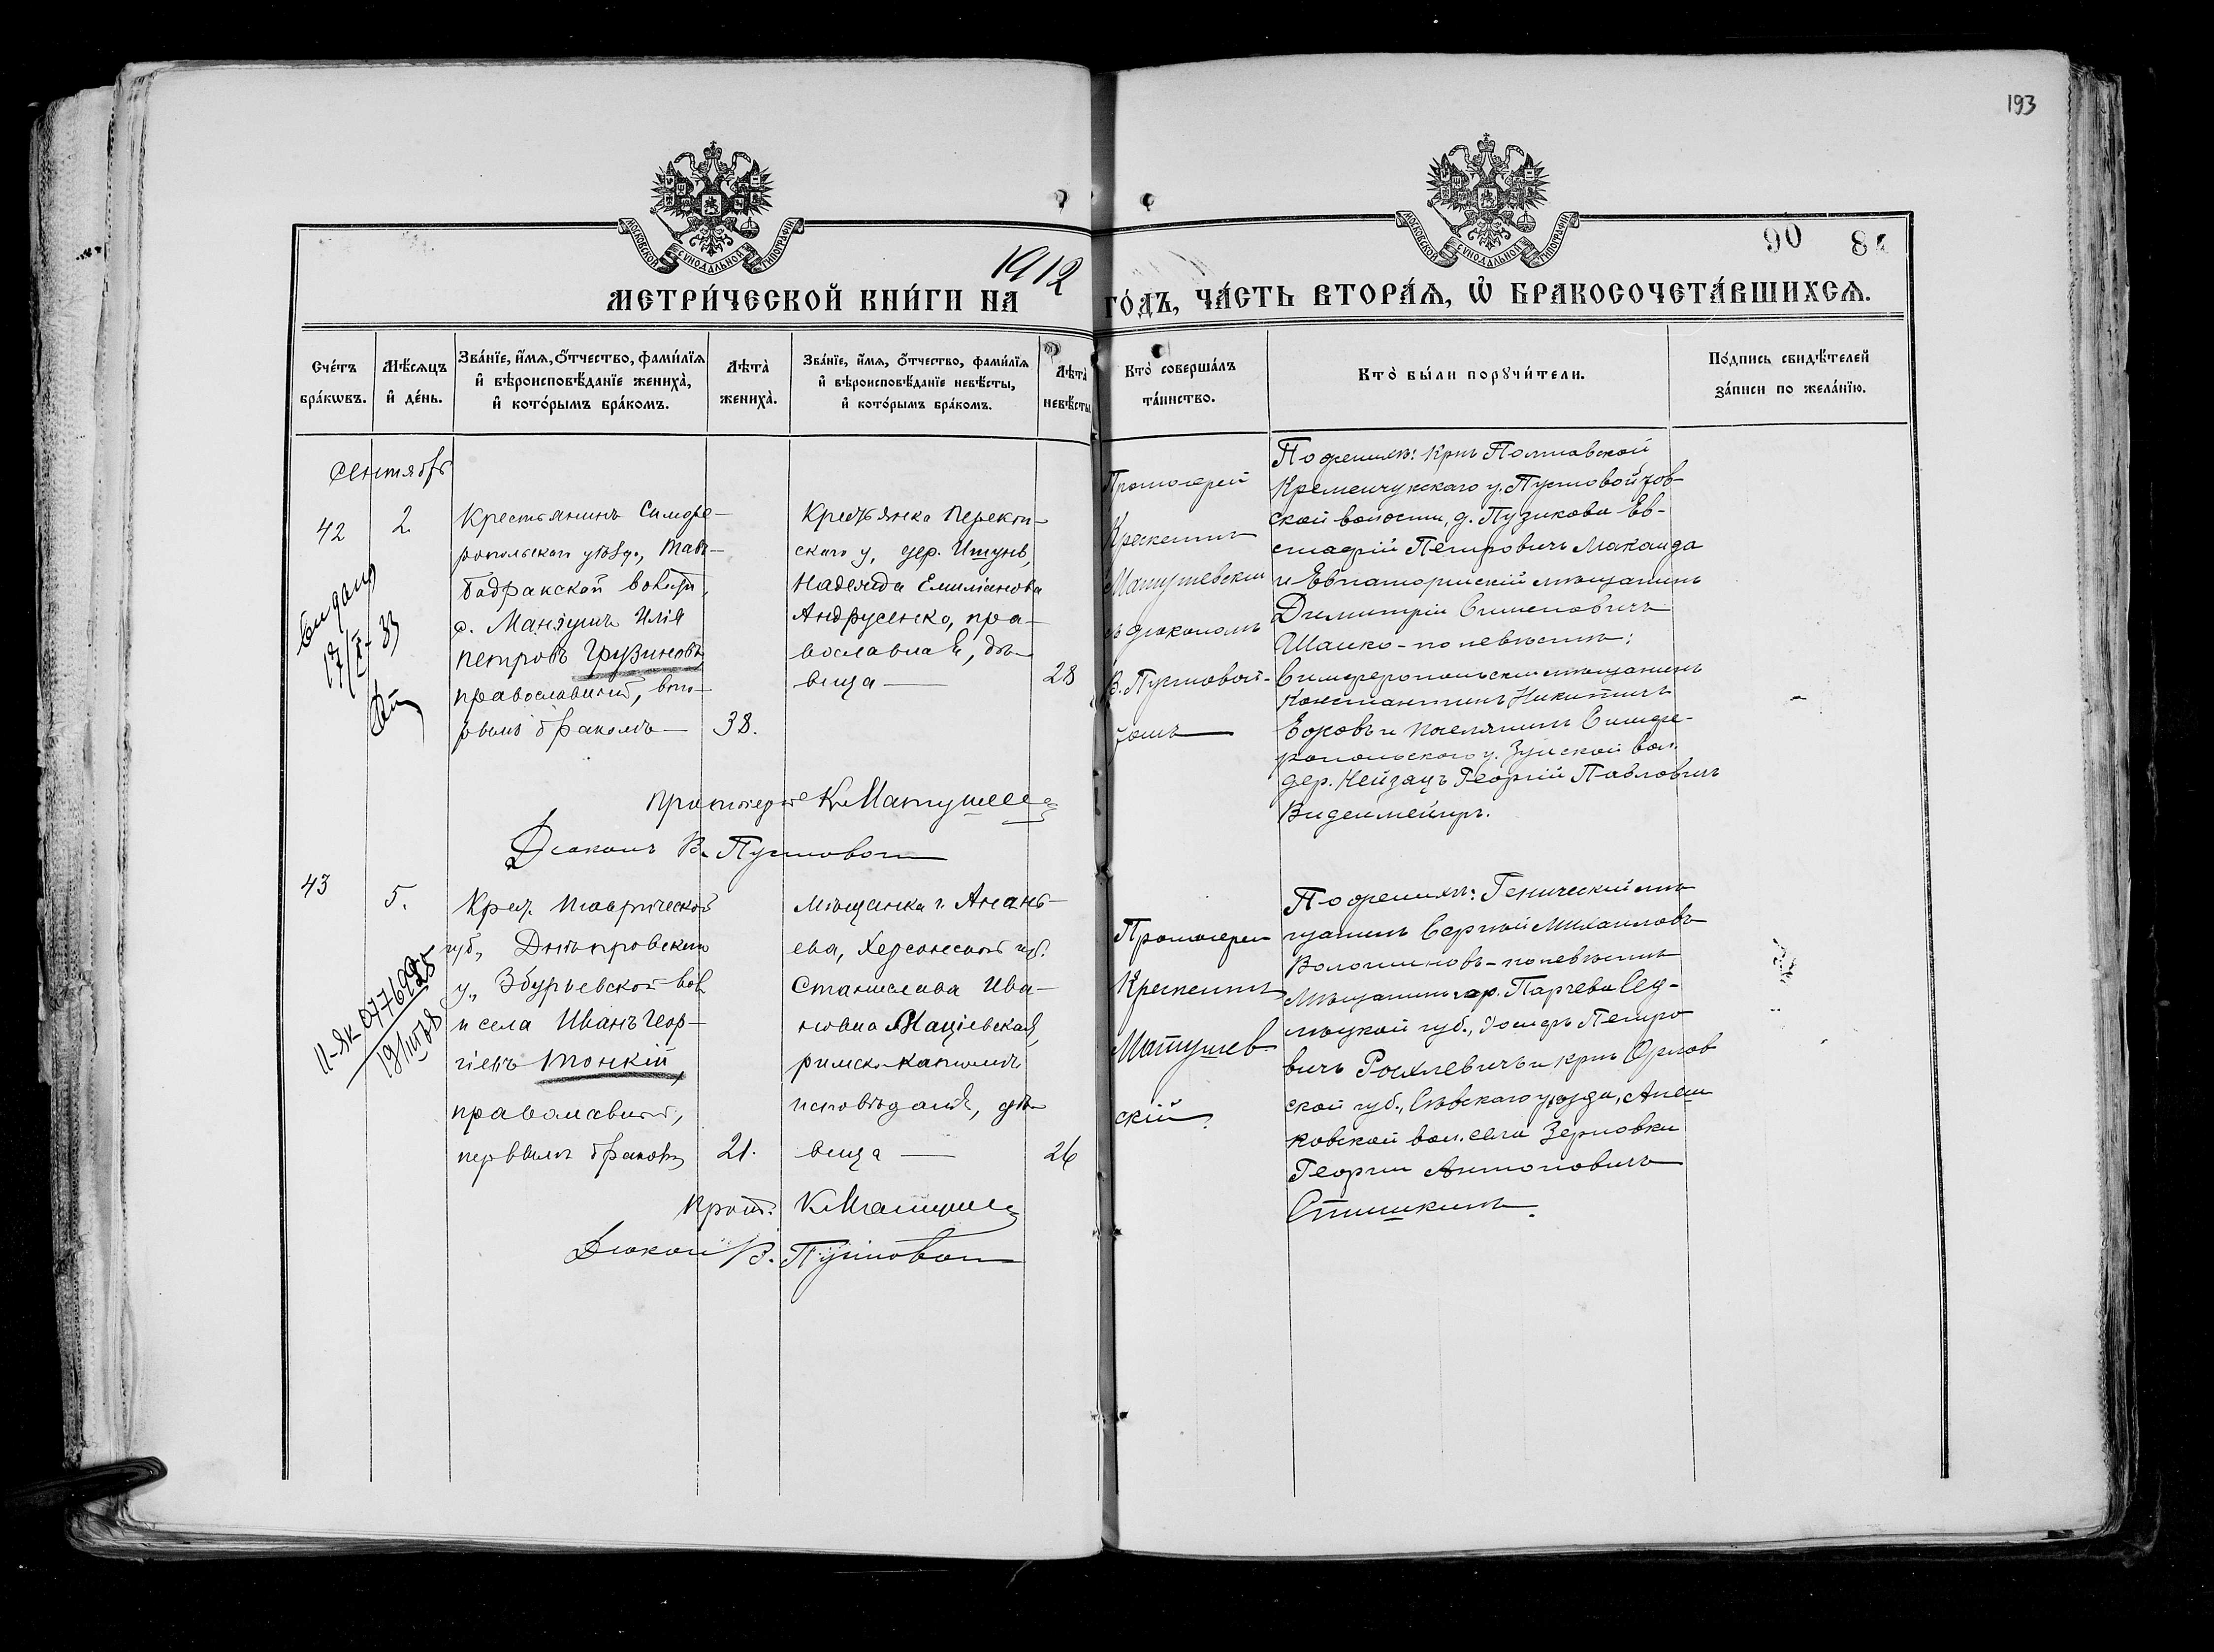 193
МОСКОВСКОЙ СУНОДАЛЬНОЙ ТИПОГРАФІИ
МОСКОВСКОЙ СУНОДАЛЬНОЙ ТИПОГРАФІИ
90 8
МЕТРИ́ЧЕСКОЙ КНИ́ГИ НА 1912
ГО́ДЪ, ЧА́СТЬ ВТОРА́Ѧ, Ѡ҆ БРАКОСОЧЕТА́ВШИХСѦ.
Сче́тъ
бра́кѡвъ.
Мѣ́сѧцъ
и҆ де́нь.
Зва́нїе, и҆́мѧ, ѻ҆́тчество, фами́лїѧ
и҆ вѣроисповѣ́данїе жениха̀,
и҆ кото́рымъ бра́комъ.
Лѣта̀
жениха̀.
Зва́нїе, и҆́мѧ, ѻ҆́тчество, фами́лїѧ
и҆ вѣроисповѣ́данїе невѣ́сты,
и҆ кото́рымъ бра́комъ.
Лѣта̀
невѣ́сты
Кто̀ соверша́лъ
та́инство.
Кто̀ бы́ли порꙋчи́тели.
По́дпись свидѣ́телей
за́писи по жела́нїю.
Сентябрь
42
2
Крестьянинъ Симфе-
ропольскаго уѣзд., Тав-
бадракской волости,
д. Мангушъ Илія
Петровъ Грузиновъ,
православный, вто-
рымъ бракомъ
38.
Крестьянка Перекоп-
скаго у, дер. Ишунь,
Надежда Емиліанова
Андрусенко, пра-
вославная, дѣ-
вица
28
Протоіерей
Крескентъ
Матушевскій
съ діакономъ
В. Пустовой-
томъ
По женихѣ: крнъ Полтавской
Кременчукскаго у. Пустовойтов-
ской волости, д. Пузикова Ев-
стафій Петровичъ Маканда
и Евпаторійскій мѣщанинъ
Димитрій Симеоновичъ
Шашко - по невѣстѣ:
Симферопольскій мѣщанинъ
Константинъ Никитинъ
и поселянинъ Симфе-
ропольскаго у. Зуйской вол.
дер. Нейзацъ Георгій Павловичъ
Виденмейеръ.
17/X-33
Протоіерей К. Матушев
Діаконъ В. Пустовой
43
5.
Крест. Таврической
губ., Днѣпровскаго
у., Збурьевской вол.
и села Иванъ Геор-
гіевъ Тонкій,
православный,
первымъ бракомъ
21.
Мѣщанка г. Анань-
ева, Херсонской губ.
Станислава Ива-
новна Маціевская,
римско-католич.
исповѣданія, дѣ-
вица
26
Протоіерей
Крескентъ
Матушев-
скій.
По женихѣ: Геническій мѣ-
щанинъ Сергѣй Михаиловъ
Волошиновъ - по невѣстѣ
Мѣщанинъ гор. Парчева Сѣд-
лецкой губ., Іосифъ Петро
вичъ и крнъ Орлов
ской губ., Сѣвскаго уѣзда,
ковской вол. села Зерновки
Георгій Антоновичъ
Стишкинъ.
II-ЯК 077699
Прот. К. Матушев
Діакон В. Пустовой